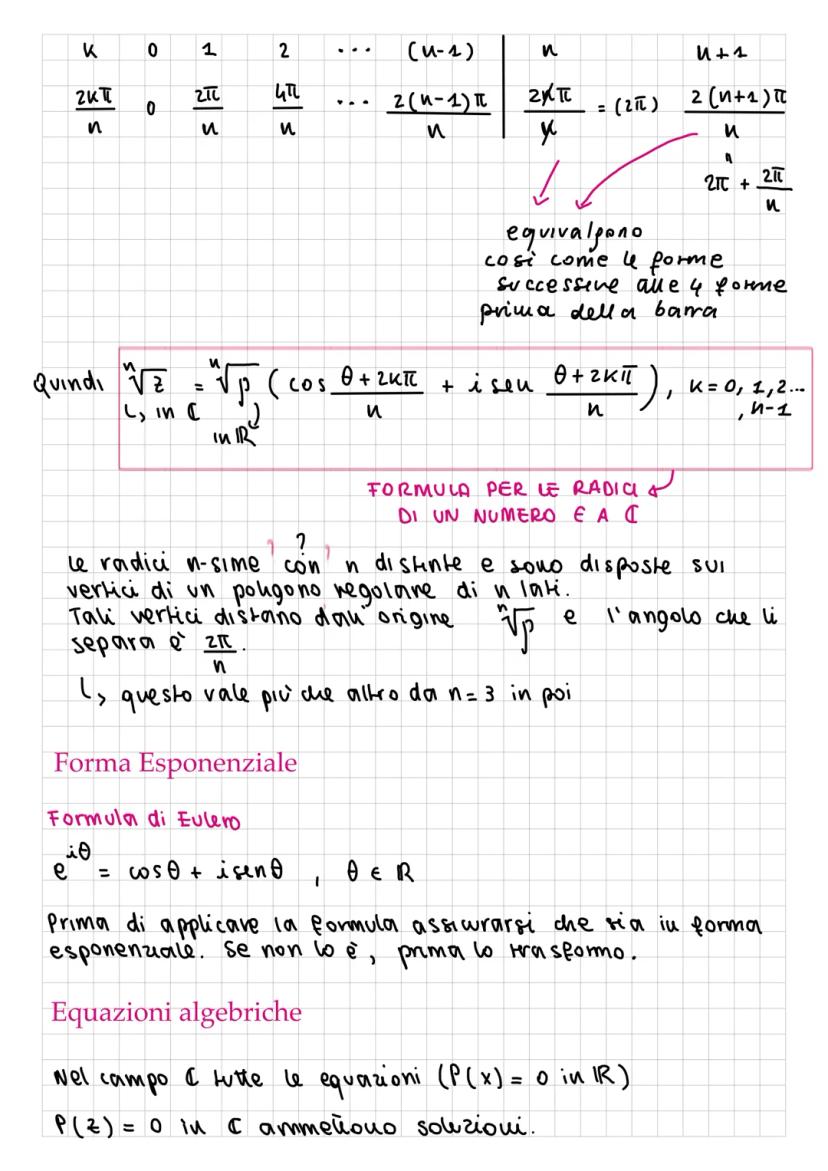 K 0 1 2 ... (n-1) | n n+1
2kπ/n 0 2π/n 4π/n ... 2(n-1)π/n | 2nπ/n = (2π) 2(n+1)π/n
" 2π + 2π/n
equivalgono
così come le forme
successive alle 4 forme
prima della barra
Quindi ⁿ√z = ⁿ√ρ (cos θ+2kπ/n + i sen θ+2kπ/n), k=0, 1,2...
↳ in ℂ in ℝ , n-1
FORMULA PER LE RADICI
DI UN NUMERO ∈ A ℂ
?
le radici n-sime "con" n distinte e sono disposte sui
vertici di un poligono regolare di n lati.
Tali vertici distano dall'origine ⁿ√ρ e l'angolo che li
separa è 2π/n.
↳ questo vale più che altro da n=3 in poi
Forma Esponenziale
Formula di Eulero
e^iθ = cosθ + i senθ , θ ∈ ℝ
Prima di applicare la formula assicurarsi che sia in forma
esponenziale. Se non lo è, prima lo trasformo.
Equazioni algebriche
Nel campo ℂ tutte le equazioni (P(x) = 0 in ℝ)
P(z) = 0 in ℂ ammettono soluzioni.